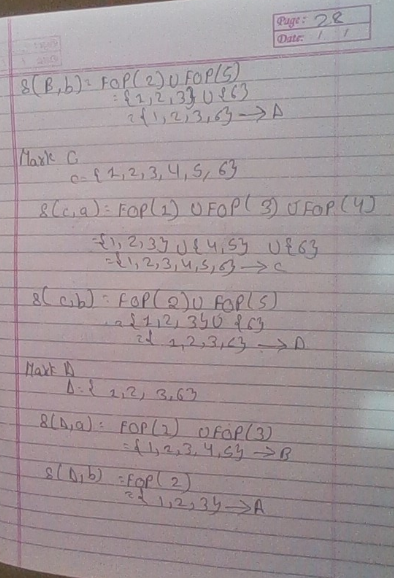 Page: 28
Date: / /
δ(B,b) = FOP(2) ∪ FOP(5)
= {1,2,3} ∪ {6}
= {1,2,3,6} → D
Mark C
C = {1,2,3,4,5,6}
δ(C,a) = FOP(1) ∪ FOP(3) ∪ FOP(4)
= {1,2,3} ∪ {4,5} ∪ {6}
= {1,2,3,4,5,6} → C
δ(C,b) = FOP(2) ∪ FOP(5)
= {1,2,3} ∪ {6}
= {1,2,3,6} → D
Mark D
D = {1,2,3,6}
δ(D,a) = FOP(1) ∪ FOP(3)
= {1,2,3,4,5} → B
δ(D,b) = FOP(2)
= {1,2,3} → A